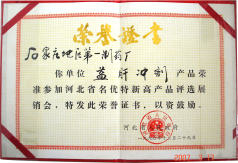 荣誉证书
石家庄地区第一制药厂
你单位 益肝冲剂 产品荣
准参加河北省名优特新高产品评选展
销会，特发此荣誉证书，以资鼓励。
河北省 政府
二十九日